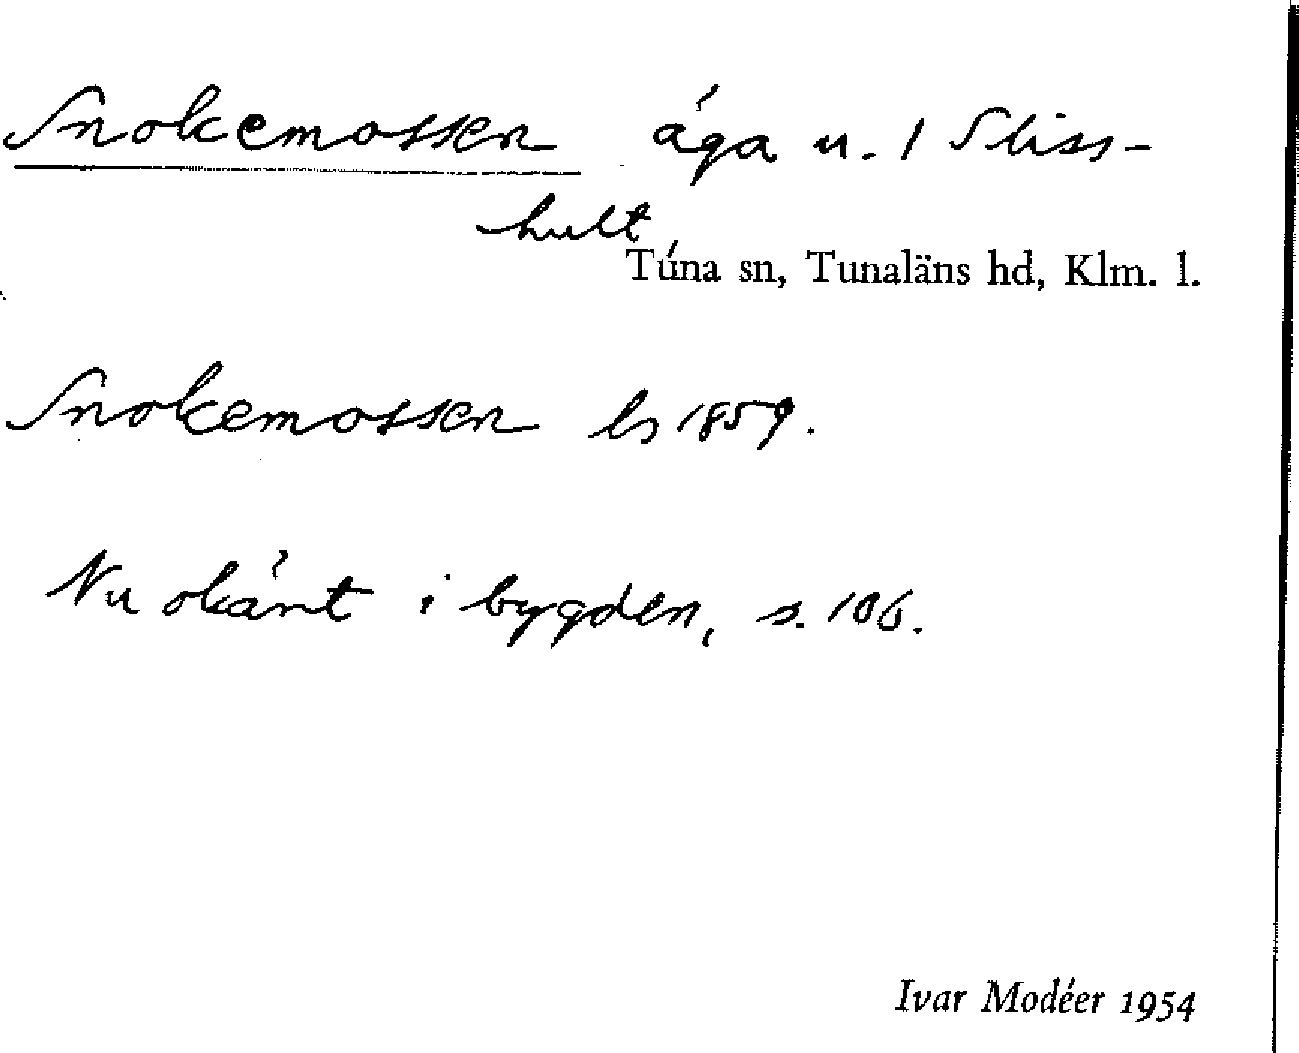 Snokemossen äga u. 1 Sliss-
hult
Tuna sn, Tunaläns hd, Klm. l.
Snokemossen ls 1859.
Nu okänt i bygden, s. 106.
Ivar Modéer 1954